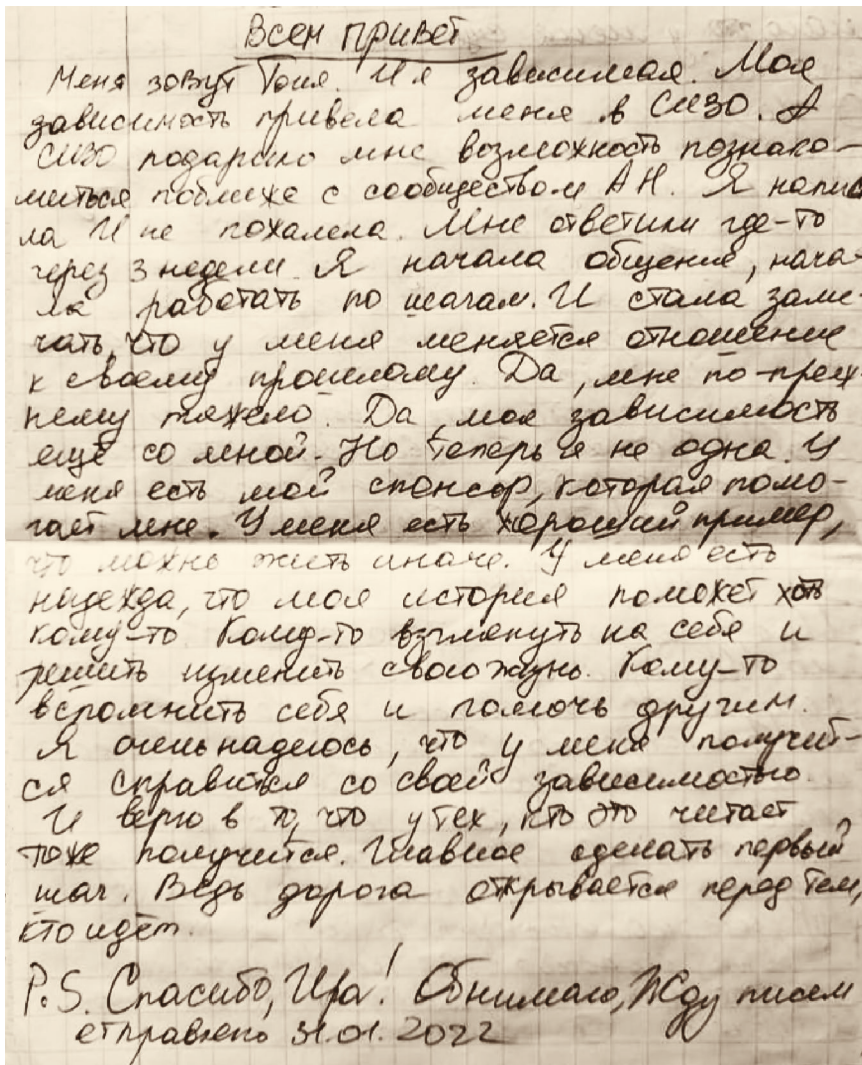 Всем привет
Меня зовут Тоня. И я зависимая. Моя
зависимость привела меня в СИЗО. А
СИЗО подарило мне возможность познако-
миться поближе с сообществом АН. Я написа
ла И не пожалела. Мне ответили где-то
через 3 недели. Я начала общение, нача-
ла работать по шагам. И стала заме-
чать, что у меня меняется отношение
к своему прошлому. Да, мне по-преж-
нему тяжело. Да, моя зависимость
ещё со мной. Но теперь я не одна. У
меня есть мой спонсор, которая помо-
гает мне. У меня есть хороший пример,
что можно жить иначе. У меня есть
надежда, что моя история поможет хоть
кому-то. Кому-то взглянуть на себя и
решить изменить свою жизнь. Кому-то
вспомнить себя и помочь другим.
Я очень надеюсь, что у меня получит-
ся справиться со своей зависимостью.
И верю в то, что у тех, кто это читает
тоже получится. Главное сделать первый
шаг. Ведь дорога открывается перед тем,
кто идёт.
P.S. Спасибо, Ира! Обнимаю, Жду писем
отправлено 31.01.2022